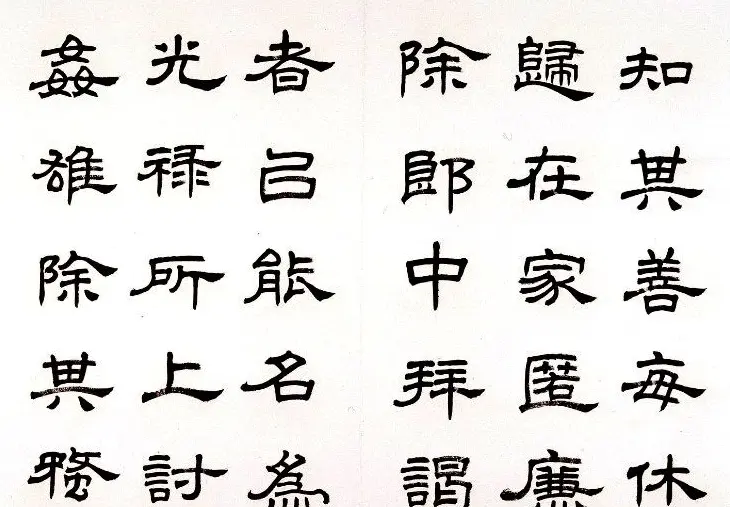 知其善每休
歸在家匿廉
除郎中拜謁
者㠯能名為
光禄所上討
姦雄除其